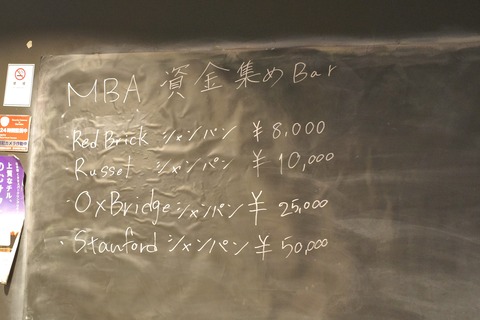 MBA 資金集めBar
・RedBrick シャンパン ¥8,000
・Russet シャンパン ¥10,000
・OxBridge シャンパン ¥25,000
・Stanford シャンパン ¥50,000
上質なチル。